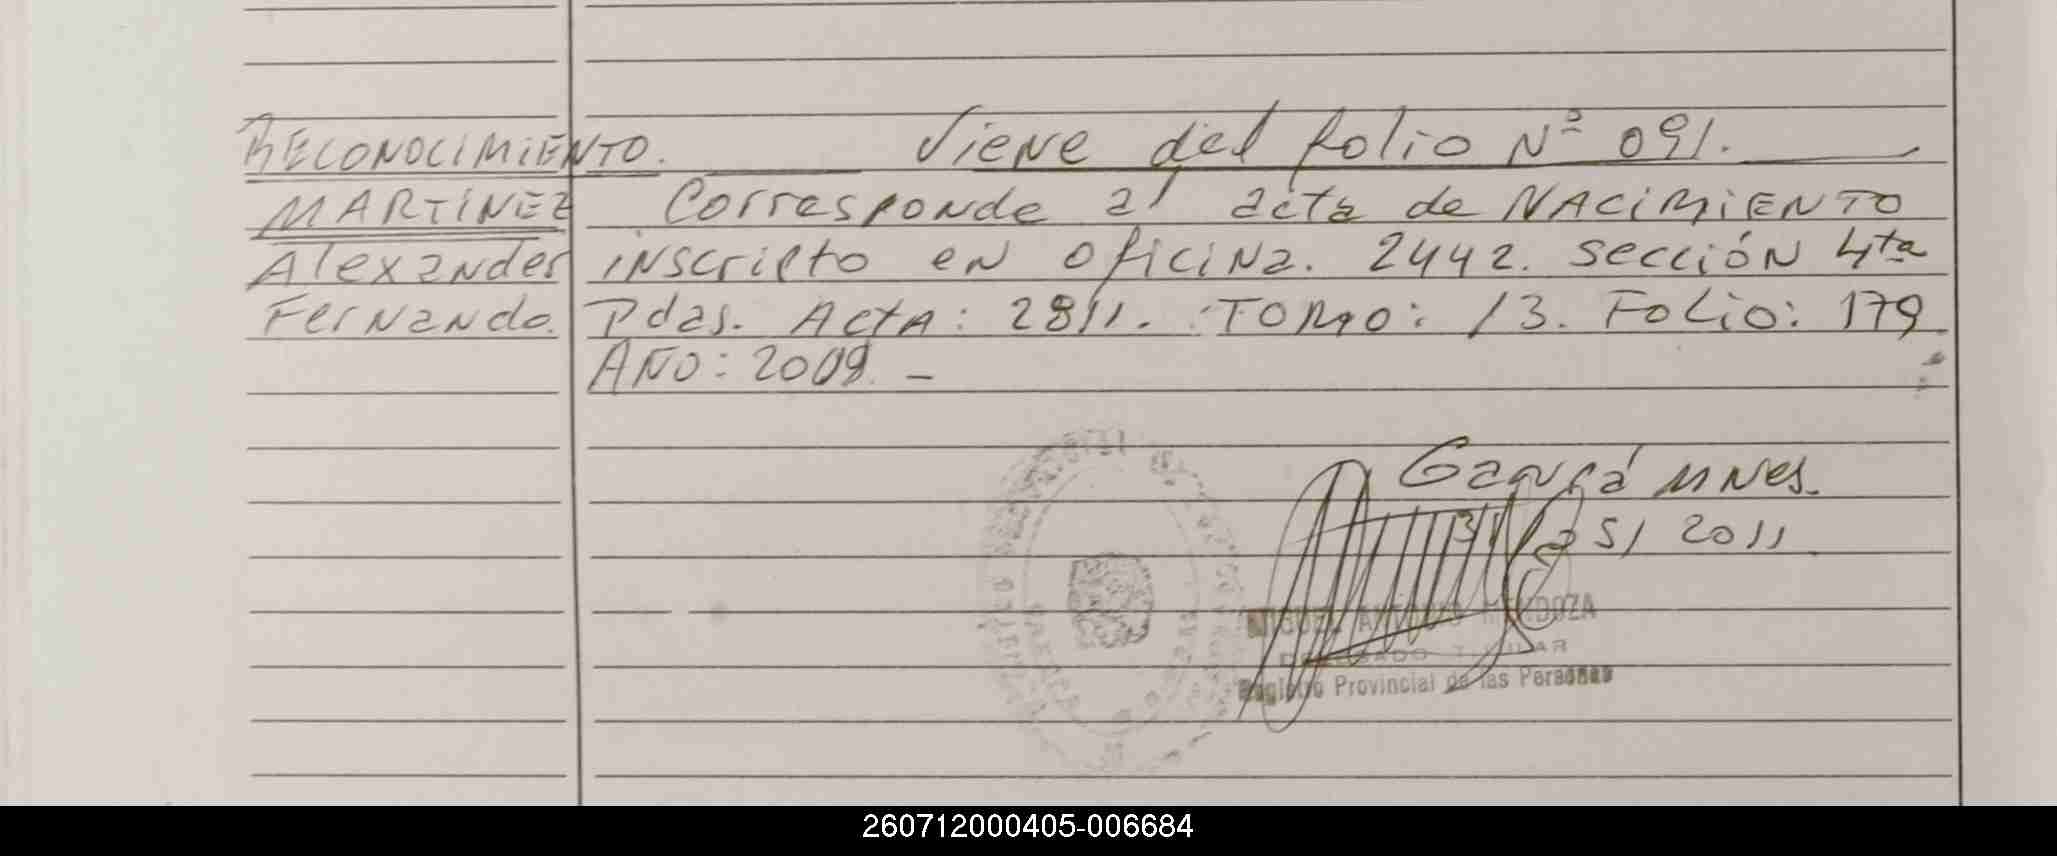 RECONOCIMIENTO. Viene del folio Nº 091.
MARTÍNEZ Corresponde al acta de NACIMIENTO
Alexander inscripto en oficina. 2442. Sección 4ta
Fernando. Pdas. Acta: 2811. Tomo: 13. Folio: 179
AÑO: 2009. -
Mnes.
2011
ANTONIO MENDOZA
DELEGADO TITULAR
Registro Provincial de las Personas
260712000405-006684